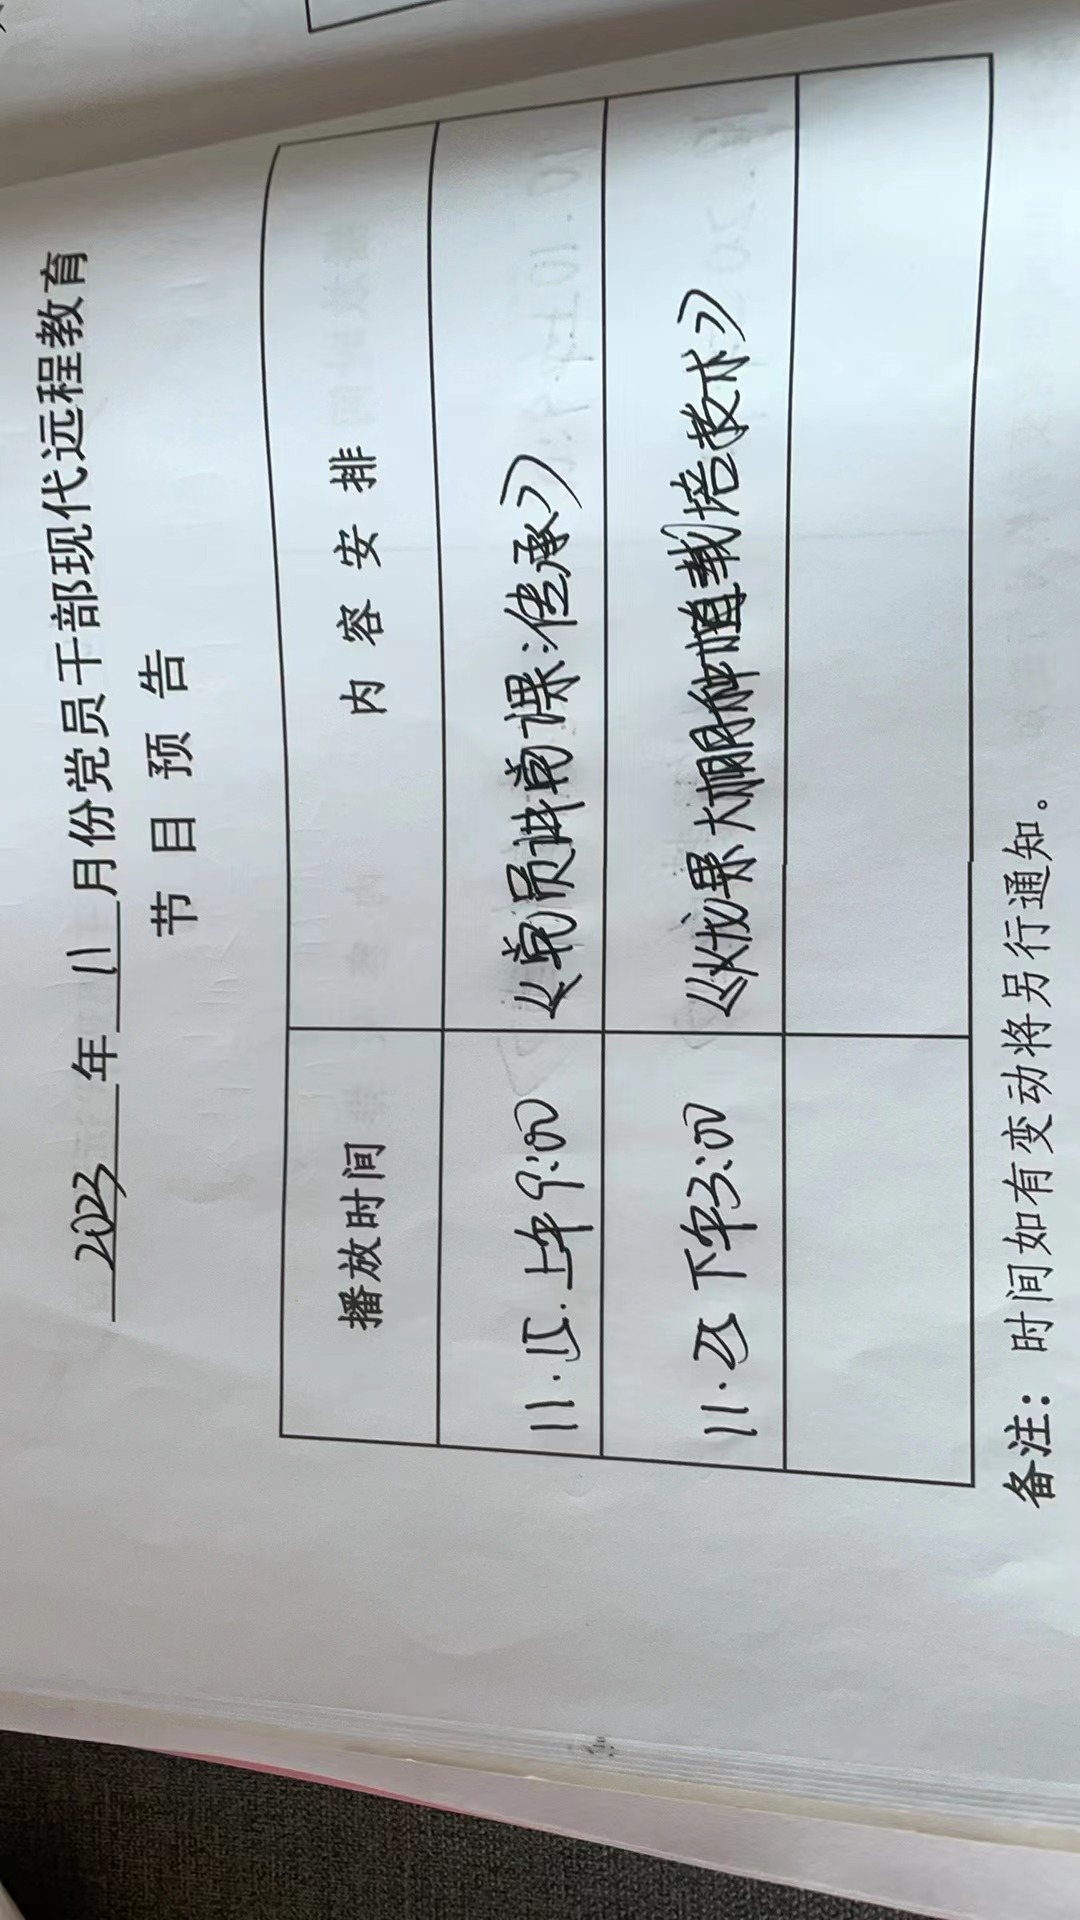 2023年11月份党员干部现代远程教育
节目预告
播放时间 内容安排
11.15.上午9:00 《党员讲党课:传承》
11.25 下午3:00 《火龙果大棚种植栽培技术》
备注：时间如有变动将另行通知。